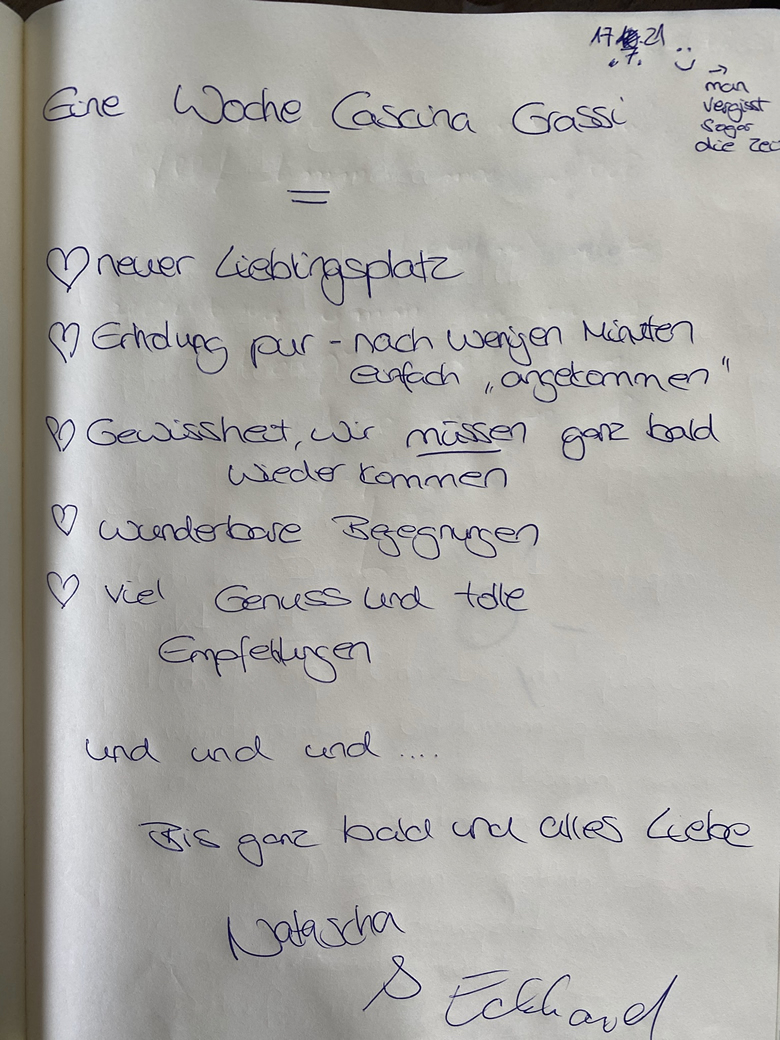 17. 7. 21 :)
→ man
vergisst
sogar
die Zei
Eine Woche Cascina Grassi
=
♡ neuer Lieblingsplatz
♡ Erholung pur - nach wenigen Minuten
einfach „angekommen"
♡ Gewissheit, wir müssen ganz bald
wieder kommen
♡ wunderbare Begegnungen
♡ viel Genuss und tolle
Empfehlungen
und und und ....
Bis ganz bald und alles Liebe
Natascha
& Eckhard